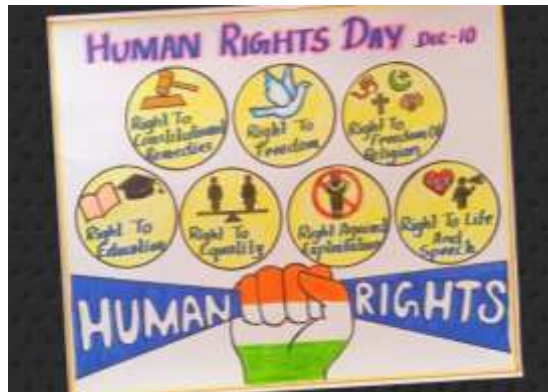 HUMAN RIGHTS DAY DEC-10
Right To
Constitutional
Remedies
Right To
Freedom
Right To
Freedom Of
Religion
Right To
Education
Right To
Equality
Right Against
Exploitation
Right To Life
And
Speech
HUMAN RIGHTS